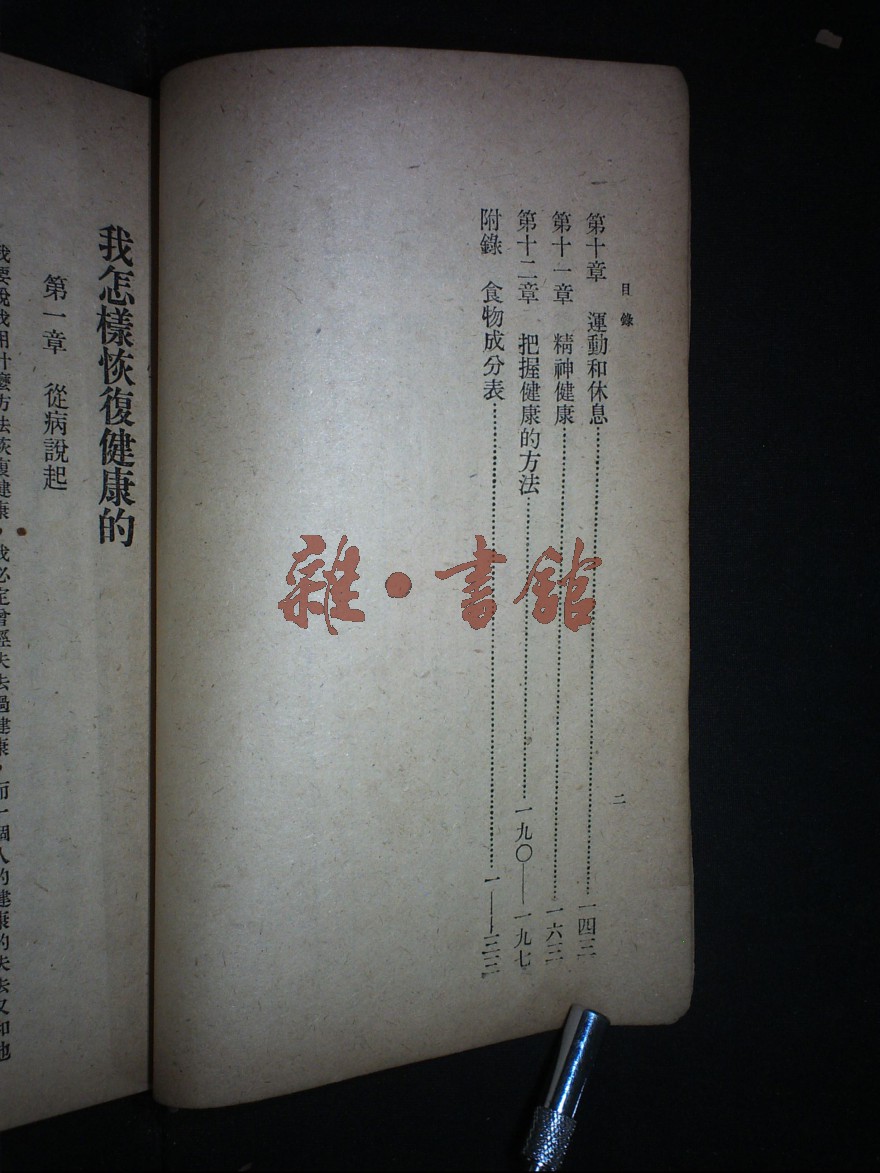 目錄
二
第十章 運動和休息……一四三
第十一章 精神健康……一六三
第十二章 把握健康的方法……一九〇—一九七
附錄 食物成分表……一—三三
我怎樣恢復健康的
第一章 從病說起
我要說我用什麼方法恢復健康，我必定曾經失去過健康，而一個人的健康的失去又和他
雜·書館